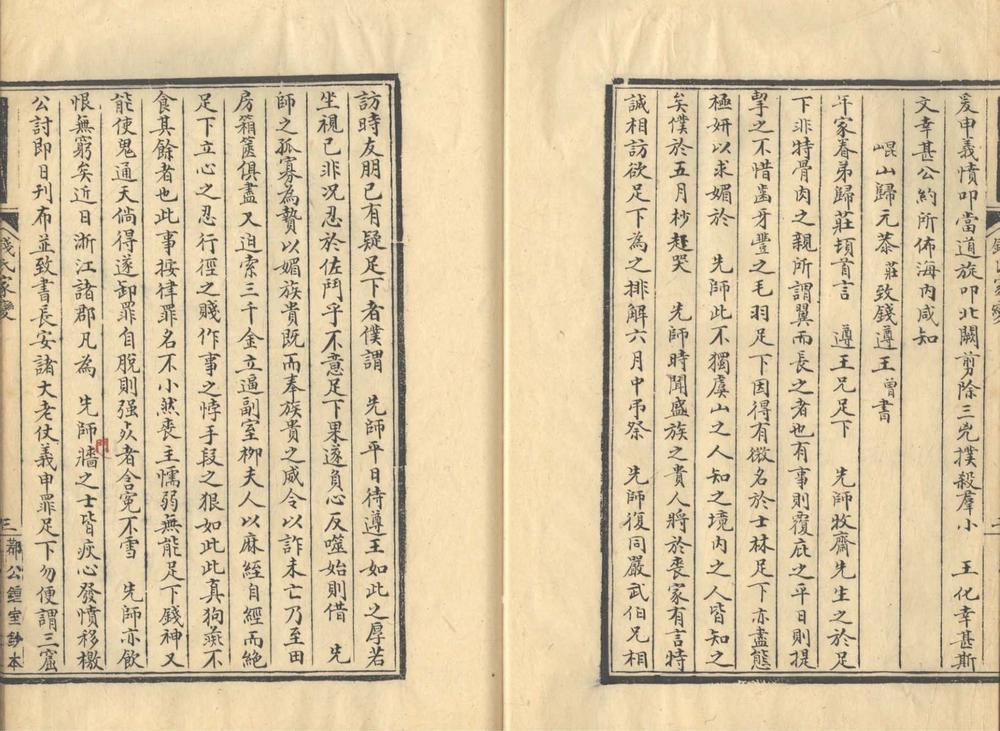 爰申義憤叩當道旋叩北闕剪除三兇撲殺羣小　王化幸甚斯
文幸甚公約所佈海內咸知
崐山歸元恭莊致錢遵王曾書
年家眷弟歸莊頓首言　遵王兄足下　先師牧齋先生之於足
下非特骨肉之親所謂翼而長之者也有事則覆庇之平日則提
挈之不惜齒牙豐之毛羽足下因得有微名於士林足下亦盡態
極妍以求媚於　先師此不獨虞山之人知之境內之人皆知之
矣僕於五月杪趨哭　先師時聞盛族之貴人將於喪家有言特
誠相訪欲足下為之排解六月中弔祭　先師復同嚴武伯兄相
訪時友朋已有疑足下者僕謂　先師平日待遵王如此之厚若
坐視已非況忍於佐鬥乎不意足下果遂負心反噬始則借　先
師之孤寡為贄以媚族貴既而奉族貴之威令以詐未亡乃至田
房箱篋俱盡又迫索三千金立逼副室柳夫人以麻絰自經而絕
足下立心之忍行徑之賤作事之悖手段之狠如此此真狗彘不
食其餘者也此事按律罪名不小然喪主懦弱無能足下錢神又
能使鬼通天倘得遂卸罪自脫則强死者含冤不雪　先師亦飲
恨無窮矣近日浙江諸郡凡為　先師門牆之士皆疾心發憤移檄
公討即日刊布並致書長安諸大老仗義申罪足下勿便謂三窟
錢氏家變
三
鄰公鍾室鈔本